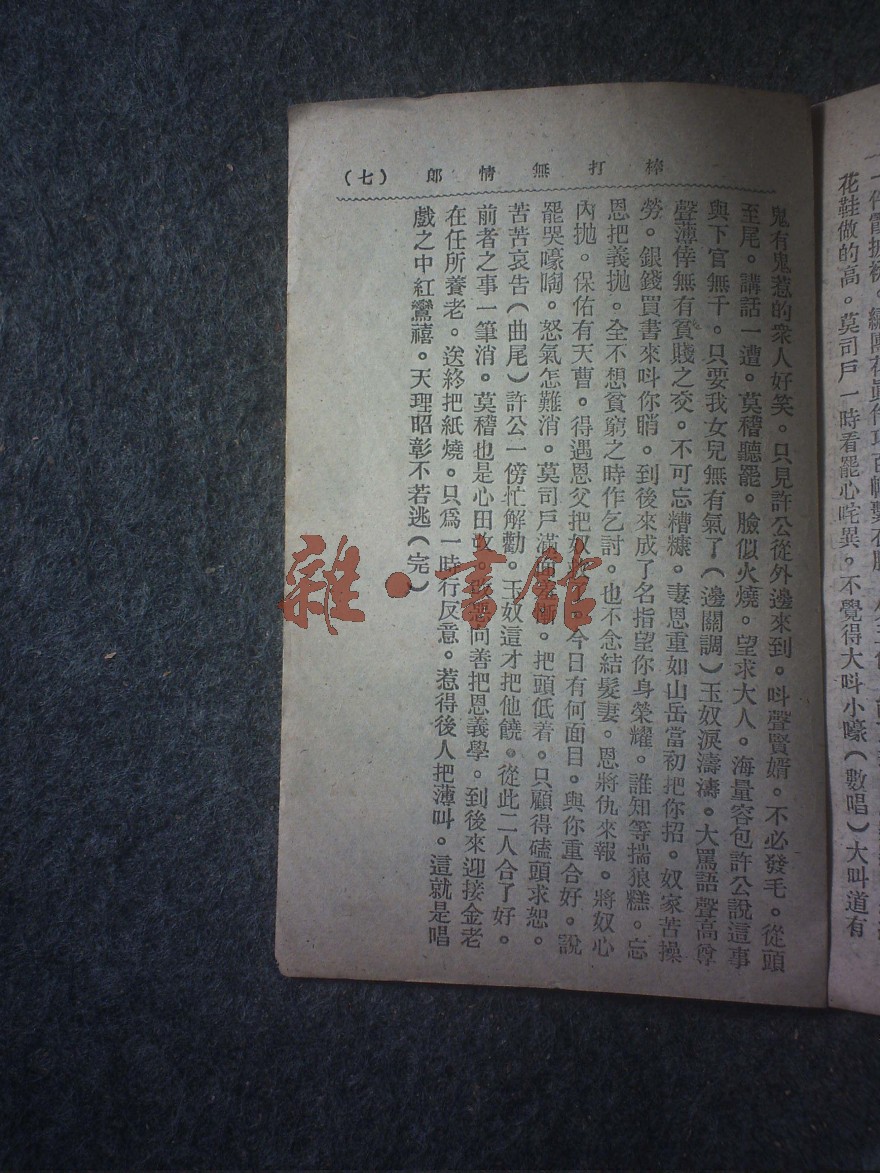 棒打無情郎 (七)
花鞋做的高。莫司戶一時看罷心咤異。不覺得大呌小嚎(數唱)大叫道有
鬼有鬼惹的衆人好笑。只見許公從外邊來到。呌聲賢婿。不必發毛。從頭
至尾。講話一遭。莫稽聽罷。臉似火燒。望求大人。海量容包許公說這事
與下官無干。只要我女兒無有氣了(邊關調)玉奴淚濤濤。大罵語聲高尊
聲薄倖無有貧賤之交。不可忘糟糠。妻恩重如山岳當初把你招。奴家苦操
勞。銀錢買書來呌你哨。到後來成了名指望你身榮耀。誰知等揣狼糕。忘
恩把義抛。全不想貧窮之時作乞討。也不念結髮妻。恩將仇來報。將奴心
內抛。保佑有天曹。得遇恩父把奴 今日有何面目。與你重合好。說
罷哭嚎啕。怒氣怎難消。莫司戶滿面 把頭低着。只顧得磕頭求恕。
苦苦哀告(曲尾)許公一傍忙解勸。玉奴這才把他饒。從此二人合了好。
前者之事一筆消。莫稽也是心田改。改惡向善把恩義學。到後來迎接金老
在任所養老。送終把紙燒。只爲一時行反意。惹得後人把薄叫。這就是唱
戲之中紅鸞禧。天理昭彰不若逃(完)
雜·書館